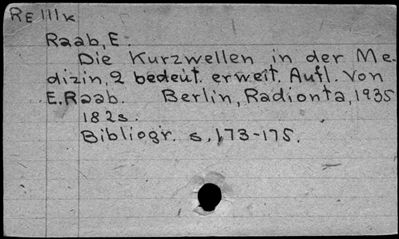 RE III k
Raab, E.
Die Kurzwellen in der Me-
dizin, 2 bedeut. erweit. Aufl. von
E. Raab. Berlin, Radionta, 1935
182 s.
Bibliogr. s. 173-175.